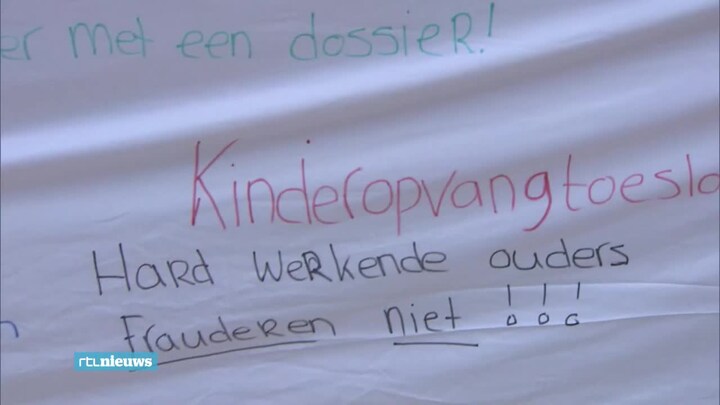 er met een dossier!
Kinderopvangtoesla
Hard werkende ouders
frauderen niet !!!
rtl nieuws